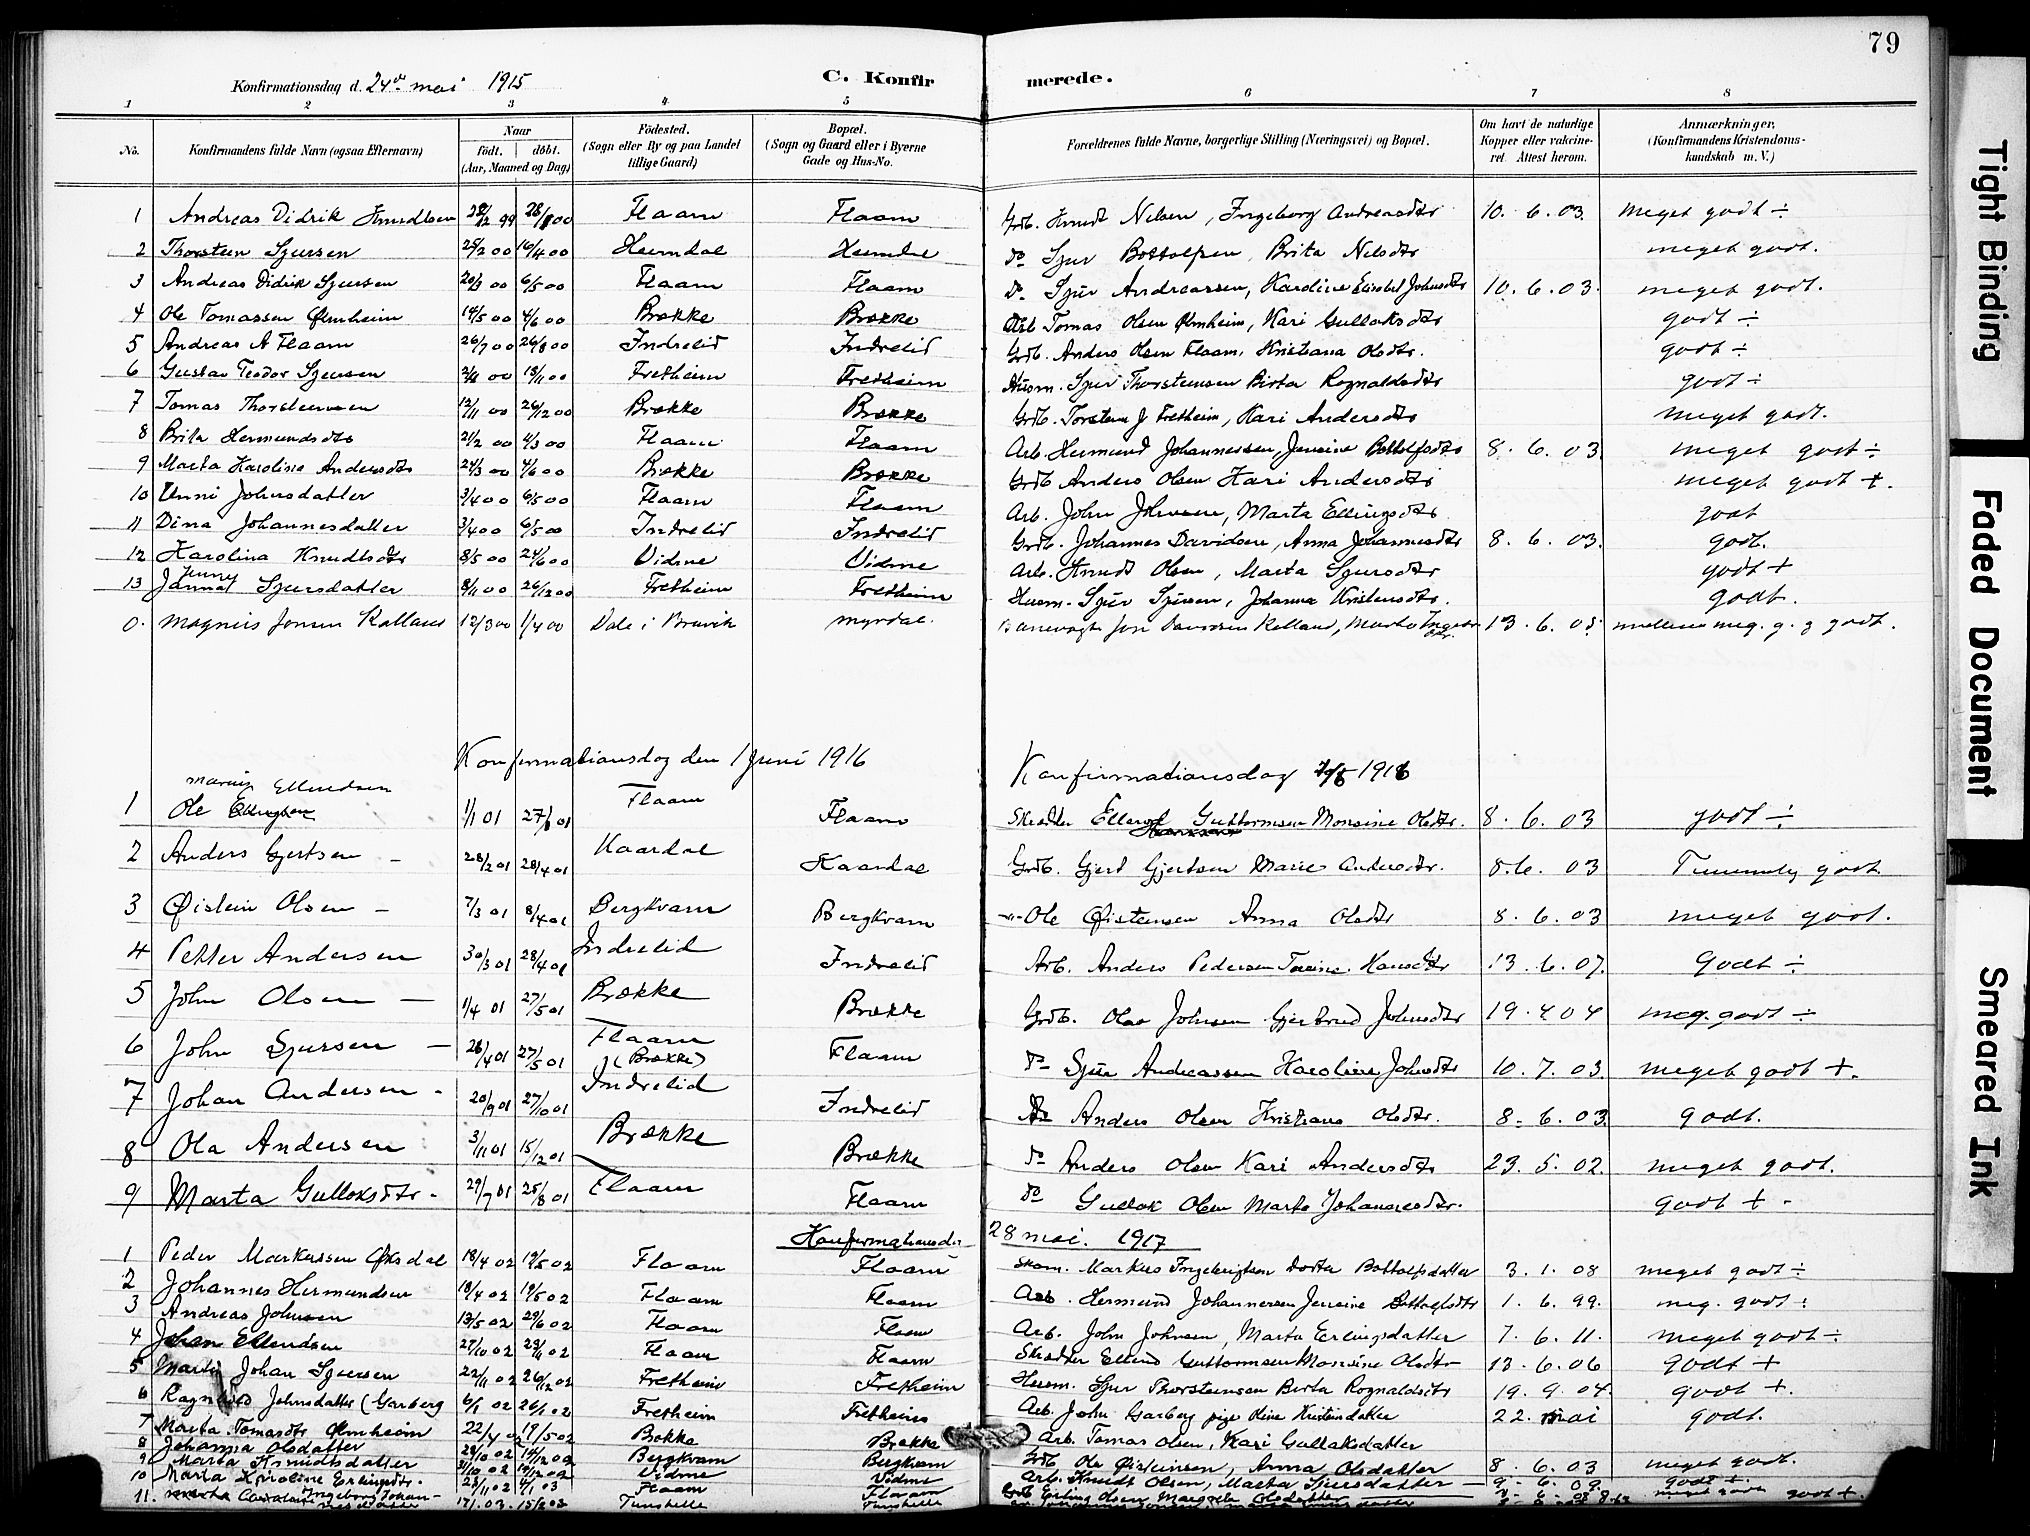 79
Konfirmationsdag d. 24de mai 1915
C. Konfirmerede.
1 2 3 4 5 6 7 8
No. Konfirmandens fulde Navn (ogsaa Efternavn) Naar født. døbt. (Aar, Maaned og Dag) Fødested. (Sogn eller By og paa Landet tillige Gaard) Bopæl. (Sogn og Gaard eller i Byerne Gade og Hus-No. Forældrenes fulde Navne, borgerlige Stilling (Næringsvei) og Bopæl. Om havt de naturlige Kopper eller vakcineret. Attest herom. Anmærkninger, (Konfirmandens Kristendomskundskab m. V.)
1 Andreas Didrik Knudtsen 99 00 Flaam Flaam Grdb. Knudt Nilsen, Ingeborg Andreasdtr 10. 6. 03. Meget godt ÷
2 Thorstein Sjursen 25/2 00 16/4 00 Heimdal Heimdal do Sjur Bottolfsen, Brita Nilsdtr meget godt.
3 Andreas Didrik Sjursen 20/3 00 6/5 00 Flaam Flaam do Sjur Andreassen, Karoline Elisabet Johnsdtr 10. 6. 03. meget godt.
4 Ole Tomassen Ølmheim 14/5 00 4/6 00 Brække Brække Arb Tomas Olsen Ølmheim, Kari Gullaksdtr godt ÷
5 Andreas A Flaam 26/7 00 26/8 00 Indrelid Indrelid Grdb. Anders Olsen Flaam, Kristiana Olsdtr. godt ÷
6 Gustav Teodor Sjursen 00 18/11 00 Fretheim Fretheim Husm. Sjur Thorsteinsen Birta Rognaldsdtr godt ÷
7 Tomas Thorsteinsen 12/11 00 26/12 00 Brække Brække Grdb. Torstein J Fretheim, Kari Andersdtr meget godt.
8 Brita Hermundsdtr 21/2 00 4/3 00 Flaam Flaam Arb. Hermund Johannessen, Jensine Bottolfsdtr 8. 6. 03. meget godt ÷
9 Marta Karoline Andersdtr 24/3 00 4/6 00 Brække Brække Grdb Anders Olsen Kari Andersdtr meget godt +.
10 Unni Johnsdatter 3/4 00 6/5 00 Flaam Flaam Arb. John Johnsen, Marta Ellingsdtr godt
11 Dina Johannesdatter 3/4 00 6/5 00 Indrelid Indrelid Grdb. Johannes Davidsen, Anna Johannesdtr 8. 6. 03. godt.
12 Karolina Knudtsdtr 8/5 00 24/6 00 Vidme Vidme Arb. Knudt Olsen, Marta Sjursdtr godt +
Jenny
13 Sjursdatter 8/11 00 26/12 00 Fretheim Fretheim Husm. Sjur Sjursen, Johanna Kristensdtr. godt.
0. Magnus Jonsen Kalland 12/3 00 1/4 00 Dale i Bruvik Myrdal. Banevogt Jon Kalland, Marta 13. 6. 05. mellem meg. g. og godt.
Konfirmationsdag den 1 Juni 1916 Konfirmationsdag 1916
Ellendsen
1 Ole 1/1 01 27/1 01 Flaam Flaam Skrædder Ellend Guttormsen Monsine Olsdtr. 8. 6. 03 godt ÷
2 Anders Gjertsen – 28/2 01 28/4 01 Kaardal Kaardal Grdb. Gjert Gjertsen Marie Andersdtr. 8. 6. 03 Temmelig godt
3 Øistein Olsen – 7/3 01 8/4 01 Bergkvam Bergkvam -"- Ole Øistensen Anna Olsdtr 8. 6. 03 meget godt.
4 Petter Andersen 30/3 01 28/4 01 Indrelid Indrelid Arb. Anders Pedersen Hansdtr 13. 6. 07. Godt ÷
5 John Olsen – 1/4 01 27/5 01 Brække Brække Grdb. Olav Johnsen Gjertrud Johnsdtr 19. 4 04 meg. godt ÷
6 John Sjursen – 26/4 01 27/5 01 Flaam (Brække) Flaam do Sjur Andreassen Karoline Johnsdtr 10. 7. 03. meget godt +.
7 Johan Andersen – 20/9 01 27/10 01 Indrelid Indrelid do Anders Olsen Kristiana Olsdtr. 8. 6. 03. Godt.
8 Ola Andersen 3/11 01 15/12 01 Brække Brække do Anders Olsen Kari Andersdtr 23. 5. 02. meget godt.
9 Marta Gullaksdtr – 29/7 01 25/8 01 Flaam Flaam do Gullak Olsen Marta Johannesdtr. Godt +
Konfirmationsd 28 mai. 1917
1 Peder Markussen Øksdal 18/4 02 19/5 02 Flaam Flaam Skom. Markus Ingebrigtsen Dorte Bottolfsdatter 3. 1. 08 meget godt ÷
2 Johannes Hermundsen 19/4 02 19/5 02 Flaam Flaam Arb. Hermund Johannessen Jensine Bottolfsdtr 1. 6. 99. meg. godt ÷
3 Andreas Johnsen 13/5 02 29/6 02 Flaam Flaam Arb. John Johnsen, Marta Erlingsdatter 7. 6. 11. meget godt ÷
4 Johan Ellendsen 27/10 02 02 Flaam Flaam Skrædder Ellend Guttormsen Monsine Olsdtr 13. 6. 06 Godt +
5 Martin Johan Sjursen 22/11 02 26/12 02 Fretheim Fretheim Husm. Sjur Thorsteinsen Birta Rognaldsdtr 19. 9. 04. godt +.
6 Ragnhild Johnsdatter (Garberg 02 02 Fretheim Fretheim Arb. John Garberg pige Oline Kristendatter 22. mai godt.
7 Marta Tomasdtr Ølmheim 22/4 02 19/5 02 Brække Brække Arb. Tomas Olsen, Kari Gullaksdatter
8 Johanna Olsdatter 02 14/12 02 Bergkvam Bergkvam Grdb Ole Øistensen, Anna Olsdatter 8. 6. 03 meget godt.
9 Marta Knudtsdatter 02 02 Vidme Vidme Arb. Knudt Olsen, Marta Sjursdatter 9. 6. 09. godt +
10 Marta Karoline Erlingsdtr. 02 03 Flaam Flaam Grdb Erling Olsen Margrete Olsdatter meget godt
11. Ingeborg Johannesdatter 17/1. 03. 15/2 03 Tunshelle Tunshelle godt +.
Tight Binding
Faded Document
Smeared Ink